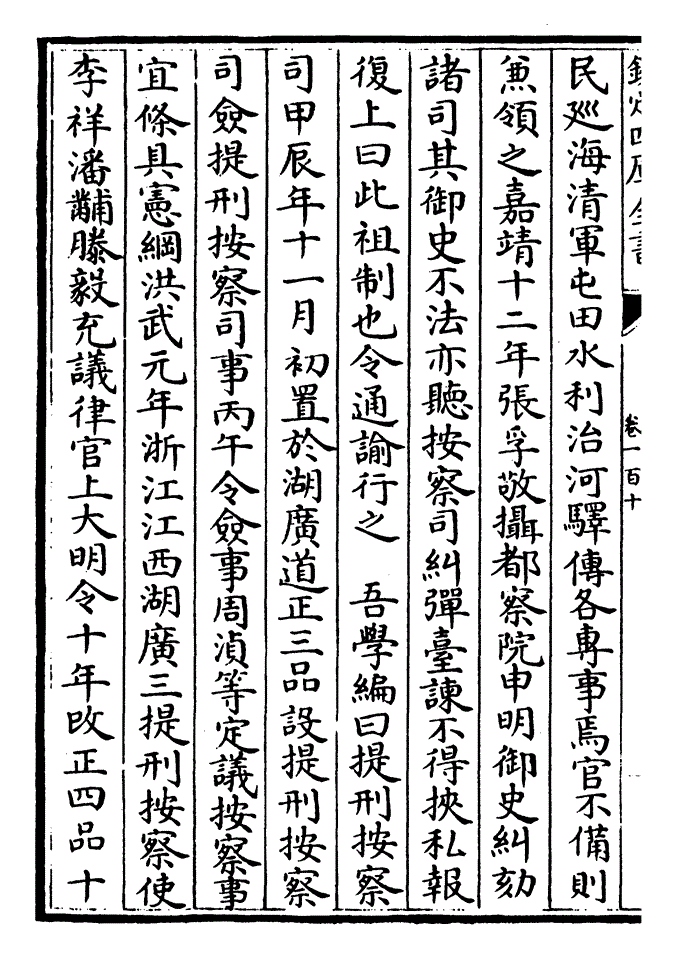 欽定四庫全書
卷一百十
民廵海清軍屯田水利治河驛傳各專事焉官不備則
兼領之嘉靖十二年張孚敬攝都察院申明御史糾劾
諸司其御史不法亦聽按察司糾彈臺諫不得挾私報
復上曰此祖制也令通諭行之　吾學編曰提刑按察
司甲辰年十一月初置於湖廣道正三品設提刑按察
司僉提刑按察司事丙午令僉事周湞等定議按察事
宜條具憲綱洪武元年浙江江西湖廣三提刑按察使
李祥潘黼滕毅充議律官上大明令十年改正四品十